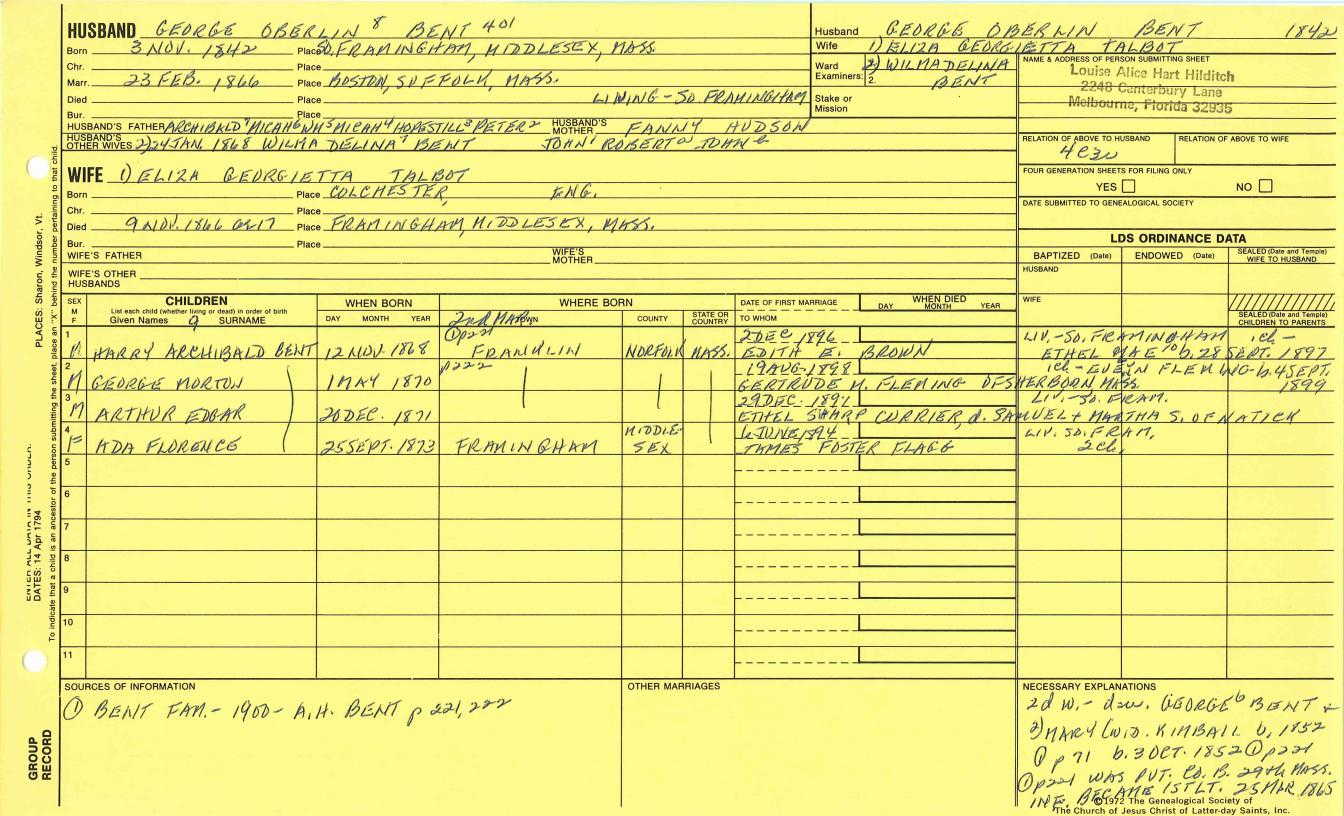 HUSBAND GEORGE OBERLIN 8 BENT 401
Born 3 NOV. 1842 Place SO. FRAMINGHAM, MIDDLESEX, MASS
Chr. Place
Marr. 23 FEB. 1866 Place BOSTON, SUFFOLK, MASS.
Died Place LIVING - SO. FRAMINGHAM
Bur. Place
HUSBAND'S FATHER ARCHIBALD 7 MICAH 6 WM 5 MICAH 4 HOPESTILL 3 PETER 2 HUSBAND'S MOTHER FANNY HUDSON
HUSBAND'S OTHER WIVES 2) 24 JAN. 1868 WILMA DELINA BENT JOHN 1 ROBERT JOHN
Husband GEORGE OBERLIN BENT 1842
Wife 1) ELIZA GEORGIETTA TALBOT
Ward Examiners: 1. 2. 2) WILMA DELINA BENT
Stake or Mission
NAME & ADDRESS OF PERSON SUBMITTING SHEET
Louise Alice Hart Hilditch
2248 Canterbury Lane
Melbourne, Florida 32935
RELATION OF ABOVE TO HUSBAND RELATION OF ABOVE TO WIFE
FOUR GENERATION SHEETS FOR FILING ONLY
YES NO
DATE SUBMITTED TO GENEALOGICAL SOCIETY
WIFE 1) ELIZA GEORGIETTA TALBOT
Born Place COLCHESTER, ENG.
Chr. Place
Died 9 NOV. 1866 ae 17 Place FRAMINGHAM, MIDDLESEX, MASS.
Bur. Place
WIFE'S FATHER WIFE'S MOTHER
WIFE'S OTHER HUSBANDS
LDS ORDINANCE DATA
BAPTIZED (Date) ENDOWED (Date) SEALED (Date and Temple) WIFE TO HUSBAND
HUSBAND
WIFE
SEALED (Date and Temple) CHILDREN TO PARENTS
SEX M F CHILDREN WHEN BORN WHERE BORN DATE OF FIRST MARRIAGE WHEN DIED
List each child (whether living or dead) in order of birth
Given Names 9 SURNAME DAY MONTH YEAR TOWN COUNTY STATE OR COUNTRY TO WHOM DAY MONTH YEAR
2nd MAR.
1 ① p221 2 DEC 1896 LIV.-SO. FRAMINGHAM 1 ch -
M HARRY ARCHIBALD BENT 12 NOV. 1868 FRANKLIN NORFOLK MASS. EDITH E. BROWN ETHEL MAE 10 b. 28 SEPT. 1897
2 p222 19 AUG. 1898 1 ch. - EVELYN FLEMING b. 4 SEPT.
M GEORGE MORTON 1 MAY 1870 GERTRUDE M. FLEMING OF SHERBORN MASS. 1899
3 29 DEC. 1897 LIV.-SO. FRAM.
M ARTHUR EDGAR 20 DEC. 1871 ETHEL SHARP CURRIER, d. SAMUEL + MARTHA S. OF NATICK
4 MIDDLE- 6 JUNE 1894 LIV. SO. FRAM,
F ADA FLORENCE 25 SEPT. 1873 FRAMINGHAM SEX JAMES FOSTER FLAGG 2 ch.
5
6
7
8
9
10
11
SOURCES OF INFORMATION
① BENT FAM. - 1900 - A.H. BENT p 221, 222
OTHER MARRIAGES
NECESSARY EXPLANATIONS
2d w. - dau. GEORGE 6 BENT +
2) MARY W.D. KIMBALL b. 1852
① p 71 b. 3 OCT. 1852 ① p221
① p221 WAS PVT. CO. B. 29th MASS.
INF. BECAME 1ST LT. 25 MAR 1865
©1972 The Genealogical Society of
The Church of Jesus Christ of Latter-day Saints, Inc.
PLACES: Sharon, Windsor, Vt.
DATES: 14 Apr 1794
To indicate that a child is an ancestor of the person submitting the sheet, place an "X" behind the number pertaining to that child.
GROUP RECORD